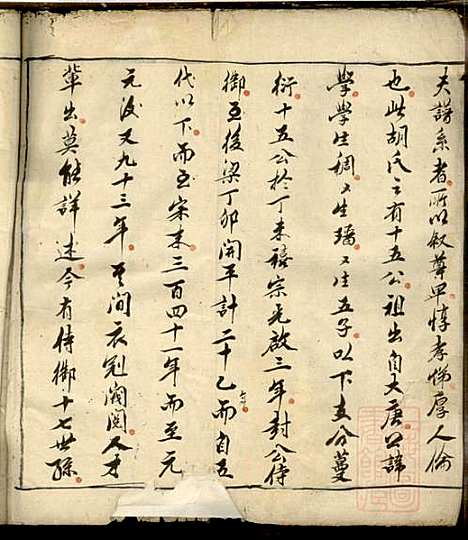 夫譜系者所以叙尊卑惇孝悌厚人倫
也此胡氏之有十五公祖出自大唐公諱
學學生稠稠生璠璠生五子以下支分蔓
衍十五公於丁未禧宗光啟三年封公侍
御至後梁丁卯開平計二十乙而自五
代以下而至宋末三百四十一年而至元
元後又九十三年其间衣冠閥閱人才
輩出莫能詳述今有侍御十七世孫